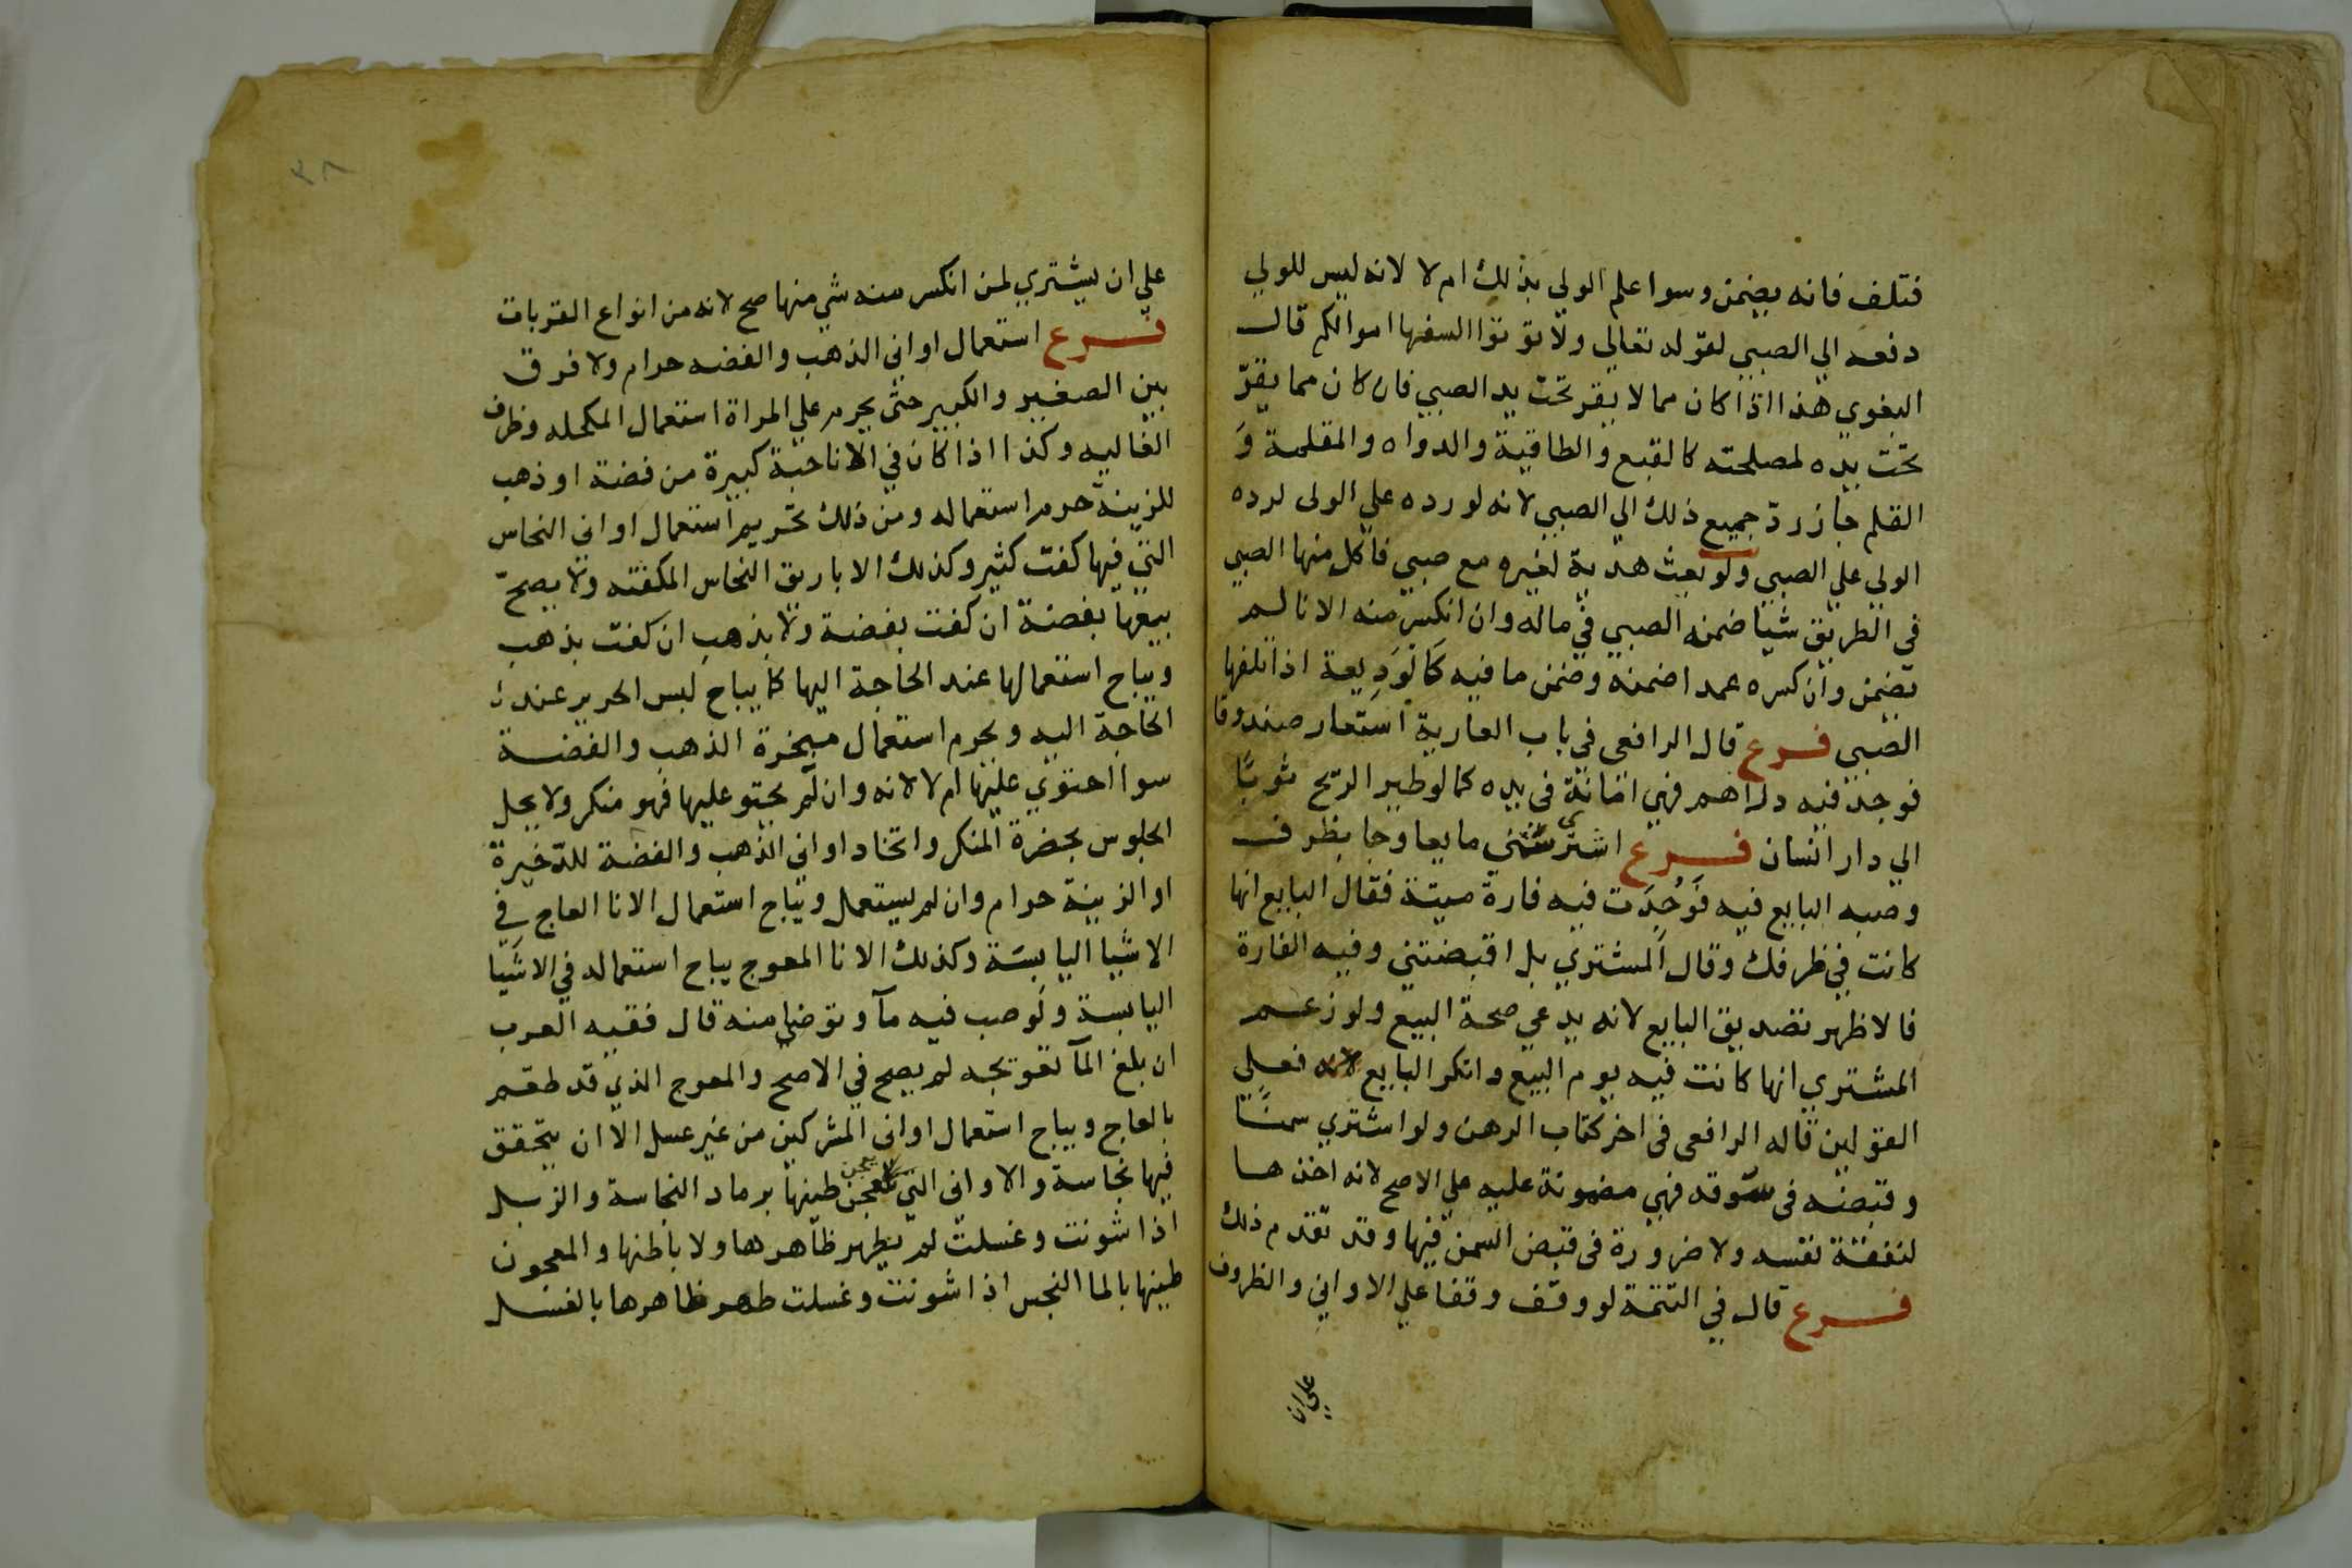 فتلف فانه يضمن وسوا علم الولي بذلك ام لا لانه ليس للولي
دفعه الي الصبي لقوله تعالي ولا توتوا السفها اموالكم قال
البغوي هذا اذا كان مما لا يقر تحت يد الصبي فان كان مما يقرّ
تحت يده لمصلحته كالقبع والطاقية والدواه والمقلمة وَ
القلم جاز ردّ جميع ذلك الي الصبي لانه لو رده علي الولي لرده
الولي علي الصبي ولو بعث هدية لغيره مع صبي فاكل منها الصبي
في الطريق شيا ضمنه الصبي في ماله وان انكسر منه الانا لم
تضمن وان كسره عمدا ضمنه وضمن ما فيه كالوديعة اذا تلفها
الصبي فرع قال الرافعي في باب العارية استعار صندوقا
فوجد فيه دراهم فهي امانة في يده كما لو طير الريح ثوبًا
الي دار انسان فرع اشتري مايعا وجا بظرف
وصبه البايع فيه فَوُجِدَت فيه فارة ميتة فقال البايع انها
كانت في ظرفك وقال المشتري بل اقبضتني وفيه الفارة
فالاظهر تصديق البايع لانه يدعي صحة البيع ولو زعم
المشتري انها كانت فيه يوم البيع وانكر البايع فعلي
القولين قاله الرافعي في اخر كتاب الرهن ولو اشتري سمنًا
وقبضه في سوقه فهي مضمونة عليه علي الاصح لانه اخذها
لنفعة نفسه ولا ضرورة في قبض السمن فيها وقد تقدم ذلك
فرع قال في التتمة لو وقف وقفا علي الاواني والظروف
علي ان
٣٨
علي ان يشتري لمن انكسر منه شي منها صح لانه من انواع القربات
فرع استعمال اواني الذهب والفضه حرام ولا فرق
بين الصغير والكبير حتي يحرم علي المراة استعمال المكحله وظرف
الغاليه وكذا اذا كان في الانا حبة كبيرة من فضة او ذهب
للزينة حرم استعماله ومن ذلك تحريم استعمال اواني النحاس
التي فيها كفت كثير وكذلك الاباريق النحاس المكفته ولا يصحّ
بيعها بفضة ان كفت بفضة ولا بذهب ان كفت بذهب
ويباح استعمالها عند الحاجة اليها كما يباح لبس الحرير عند
الحاجة اليه ويحرم استعمال مبخرة الذهب والفضة
سوا احتوي عليها ام لا لانه وان لم يحتو عليها فهو منكر ولا يحل
الجلوس بحضرة المنكر واتخاد اواني الذهب والفضة للدّخيرة
او الزينة حرام وان لم يستعمل ويباح استعمال الانا العاج في
الاشيا اليابسة وكذلك الانا المعوج يباح استعماله في الاشيا
اليابسة ولو صب فيه مآ وتوضا منه قال فقيه العرب
ان بلغ المآ تعويجه لم يصح في الاصح والمعوج الذي قد طعم
بالعاج ويباح استعمال اواني المشركين من غير غسل الا ان يتحقق
فيها نجاسة والاواني التي يعجن طينها برماد النجاسة والزبل
اذا شونت وغسلت لم يطهر ظاهرها ولا باطنها والمعجون
طينها بالما النجس اذا شونت وغسلت طهر ظاهرها بالغسل